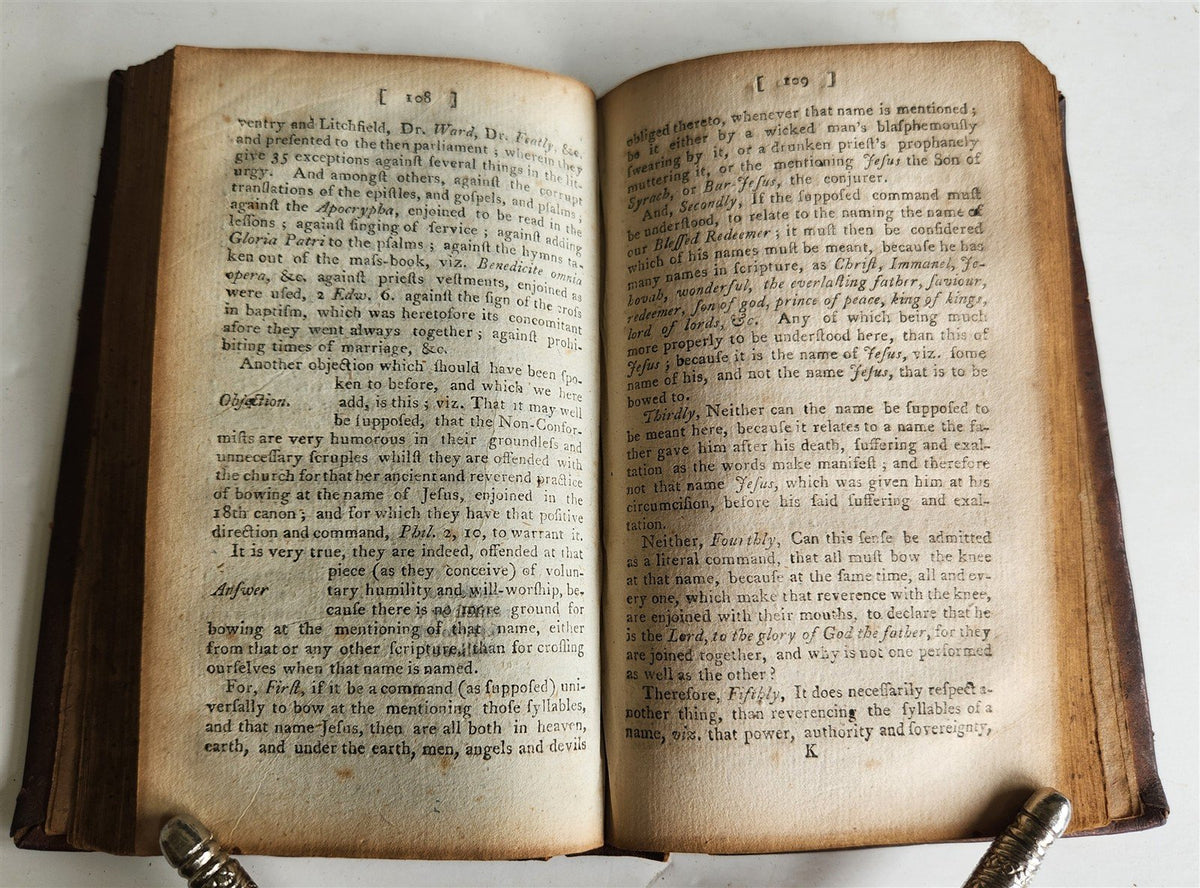 [ 108 ]
ventry and Litchfield, Dr. Ward, Dr. Featly, &c.
and preſented to the then parliament ; wherein they
give 35 exceptions againſt ſeveral things in the lit-
urgy. And amongſt others, againſt the corrupt
tranſlations of the epiſtles, and goſpels, and pſalms ;
againſt the Apocrypha, enjoined to be read in the
leſſons ; againſt ſinging of ſervice ; againſt adding
Gloria Patri to the pſalms ; againſt the hymns ta-
ken out of the maſs-book, viz. Benedicite omnia
opera, &c. againſt prieſts veſtments, enjoined as
were uſed, 2 Edw. 6. againſt the ſign of the croſs
in baptiſm, which was heretofore its concomitant
afore they went always together ; againſt prohi-
biting times of marriage, &c.
Another objection which ſhould have been ſpo-
ken to before, and which we here
Objection. add, is this ; viz. That it may well
be ſuppoſed, that the Non-Confor-
miſts are very humorous in their groundleſs and
unneceſſary ſcruples whilſt they are offended with
the church for that her ancient and reverend practice
of bowing at the name of Jeſus, enjoined in the
18th canon ; and for which they have that poſitive
direction and command, Phil. 2, 10, to warrant it.
It is very true, they are indeed, offended at that
piece (as they conceive) of volun-
Anſwer tary humility and will-worſhip, be-
cauſe there is no more ground for
bowing at the mentioning of that name, either
from that or any other ſcripture, than for croſſing
ourſelves when that name is named.
For, Firſt, if it be a command (as ſuppoſed) uni-
verſally to bow at the mentioning thoſe ſyllables,
and that name Jeſus, then are all both in heaven,
earth, and under the earth, men, angels and devils
[ 109 ]
obliged thereto, whenever that name is mentioned ;
be it either by a wicked man's blaſphemouſly
ſwearing by it, or a drunken prieſt's prophanely
muttering it, or the mentioning Jeſus the Son of
Syrach, or Bar-Jeſus, the conjurer.
And, Secondly, If the ſuppoſed command muſt
be underſtood, to relate to the naming the name of
our Bleſſed Redeemer ; it muſt then be conſidered
which of his names muſt be meant, becauſe he has
many names in ſcripture, as Chriſt, Immanel, Je-
hovah, wonderful, the everlaſting father, ſaviour,
redeemer, ſon of god, prince of peace, king of kings,
lord of lords, &c. Any of which being much
more properly to be underſtood here, than this of
Jeſus ; becauſe it is the name of Jeſus, viz. ſome
name of his, and not the name Jeſus, that is to be
bowed to.
Thirdly, Neither can the name be ſuppoſed to
be meant here, becauſe it relates to a name the fa-
ther gave him after his death, ſuffering and exal-
tation as the words make manifeſt ; and therefore
not that name Jeſus, which was given him at his
circumciſion, before his ſaid ſuffering and exal-
tation.
Neither, Fourthly, Can this ſenſe be admitted
as a literal command, that all muſt bow the knee
at that name, becauſe at the ſame time, all and ev-
ery one, which make that reverence with the knee,
are enjoined with their mouths, to declare that he
is the Lord, to the glory of God the father, for they
are joined together, and why is not one performed
as well as the other ?
Therefore, Fifthly, It does neceſſarily reſpect a-
nother thing, than reverencing the ſyllables of a
name, viz. that power, authority and ſovereignty,
K